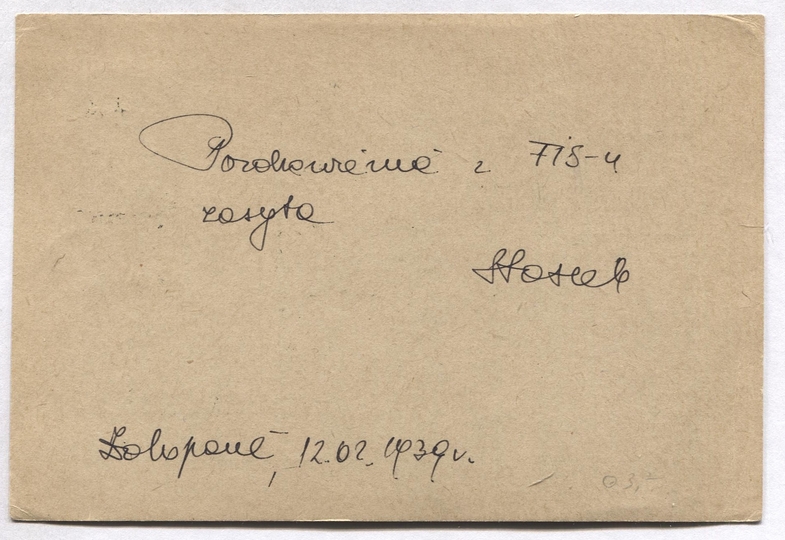 Pozdrowienia z FIS-u
zasyła
Zakopane, 12.02.1939r.